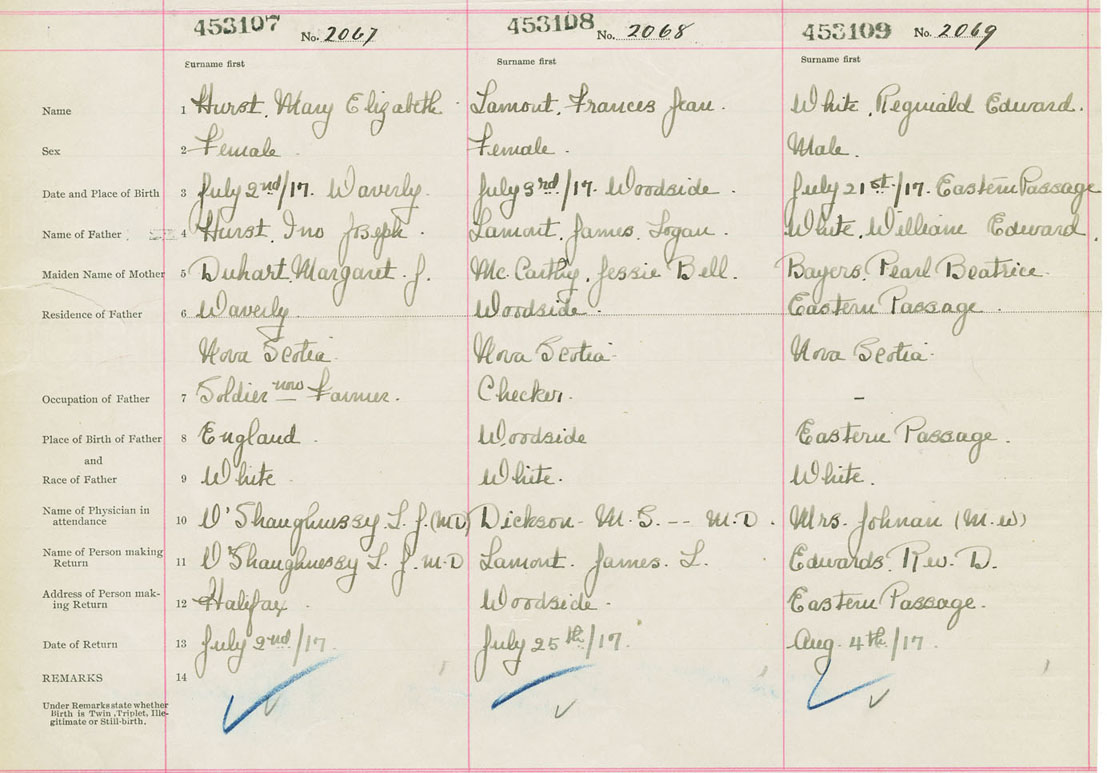 453107 No. 2067 453108 No. 2068 453109 No. 2069
Surname first Surname first Surname first
Name 1 Hurst, Mary Elizabeth. Lamont, Frances Jean White, Reginald Edward.
Sex 2 Female. Female. Male.
Date and Place of Birth 3 July 2nd/17. Waverly. July 3rd/17. Woodside. July 21st/17. Eastern Passage
Name of Father 4 Hurst, Jno Joseph. Lamont, James, Logan. White, William Edward.
Maiden Name of Mother 5 Duhart, Margaret. J. Mc.Carthy, Jessie Bell. Bayers, Pearl Beatrice.
Residence of Father 6 Waverly. Woodside. Eastern Passage.
Nova Scotia. Nova Scotia. Nova Scotia.
Occupation of Father 7 Soldier now Farmer. Checker. -
Place of Birth of Father 8 England. Woodside Eastern Passage.
and
Race of Father 9 White. White. White.
Name of Physician in
attendance 10 O'Shaughnessy L. J. (M.D) Dickson - M. S. -- M.D. Mrs. Johnan (M.W)
Name of Person making
Return 11 O'Shaughnessy L. J. M.D Lamont. James. L. Edwards. Rev. D.
Address of Person mak-
ing Return 12 Halifax. Woodside. Eastern Passage.
Date of Return 13 July 2nd/17. July 25th/17. Aug. 4th/17.
REMARKS 14
Under Remarks state whether
Birth is Twin, Triplet, Ille-
gitimate or Still-birth.